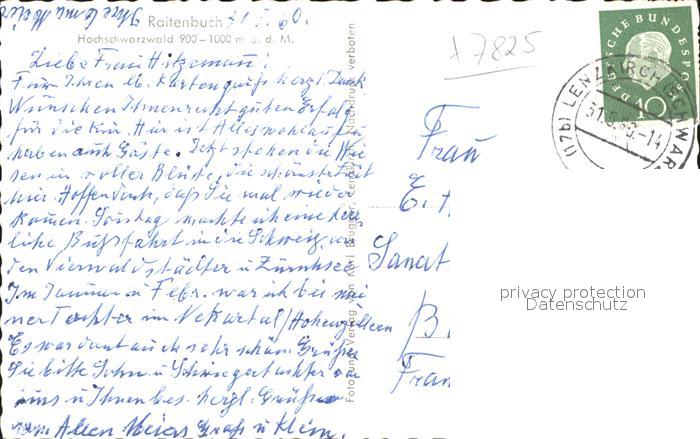 Ihre Emma Meier
Raitenbuch 31.5.60.
Hochschwarzwald 900-1000 m ü. d. M.
Liebe Frau Hitzemann!
Für Ihren lb. Kartengruß hrzl. Dank
Wünschen Ihnen recht guten Erfolg
für die Kur. Hier ist Alles wohlauf, Zu
haben auch Gäste. Jetzt stehen die Wie
sen in voller Blüte, die schönste Zeit
hier. Hoffen doch, daß Sie mal wieder
kommen. Sonntag machte ich eine herr
liche Busfahrt in die Schweiz, an
den Vierwaldstädter u Zürichsee
Im Januar u Febr. war ich bei mei
ner Tochter im Neckartal/Hohenzollern
Es war dort auch sehr schön. Grüßen
Sie bitte Sohn u Schwiegertochter von
uns u Ihnen bes. herzl. Grüße
von Allen Meiers Groß u Klein.
Foto und Verlag von Karl Brugger, Nachdruck verboten
+7825
Frau
E. H
Sanat
B
Fran
DEUTSCHE BUNDESPOST
10
(17b) LENZKIRCH (SCHWARZ
31.5.60-14
privacy protection
Datenschutz